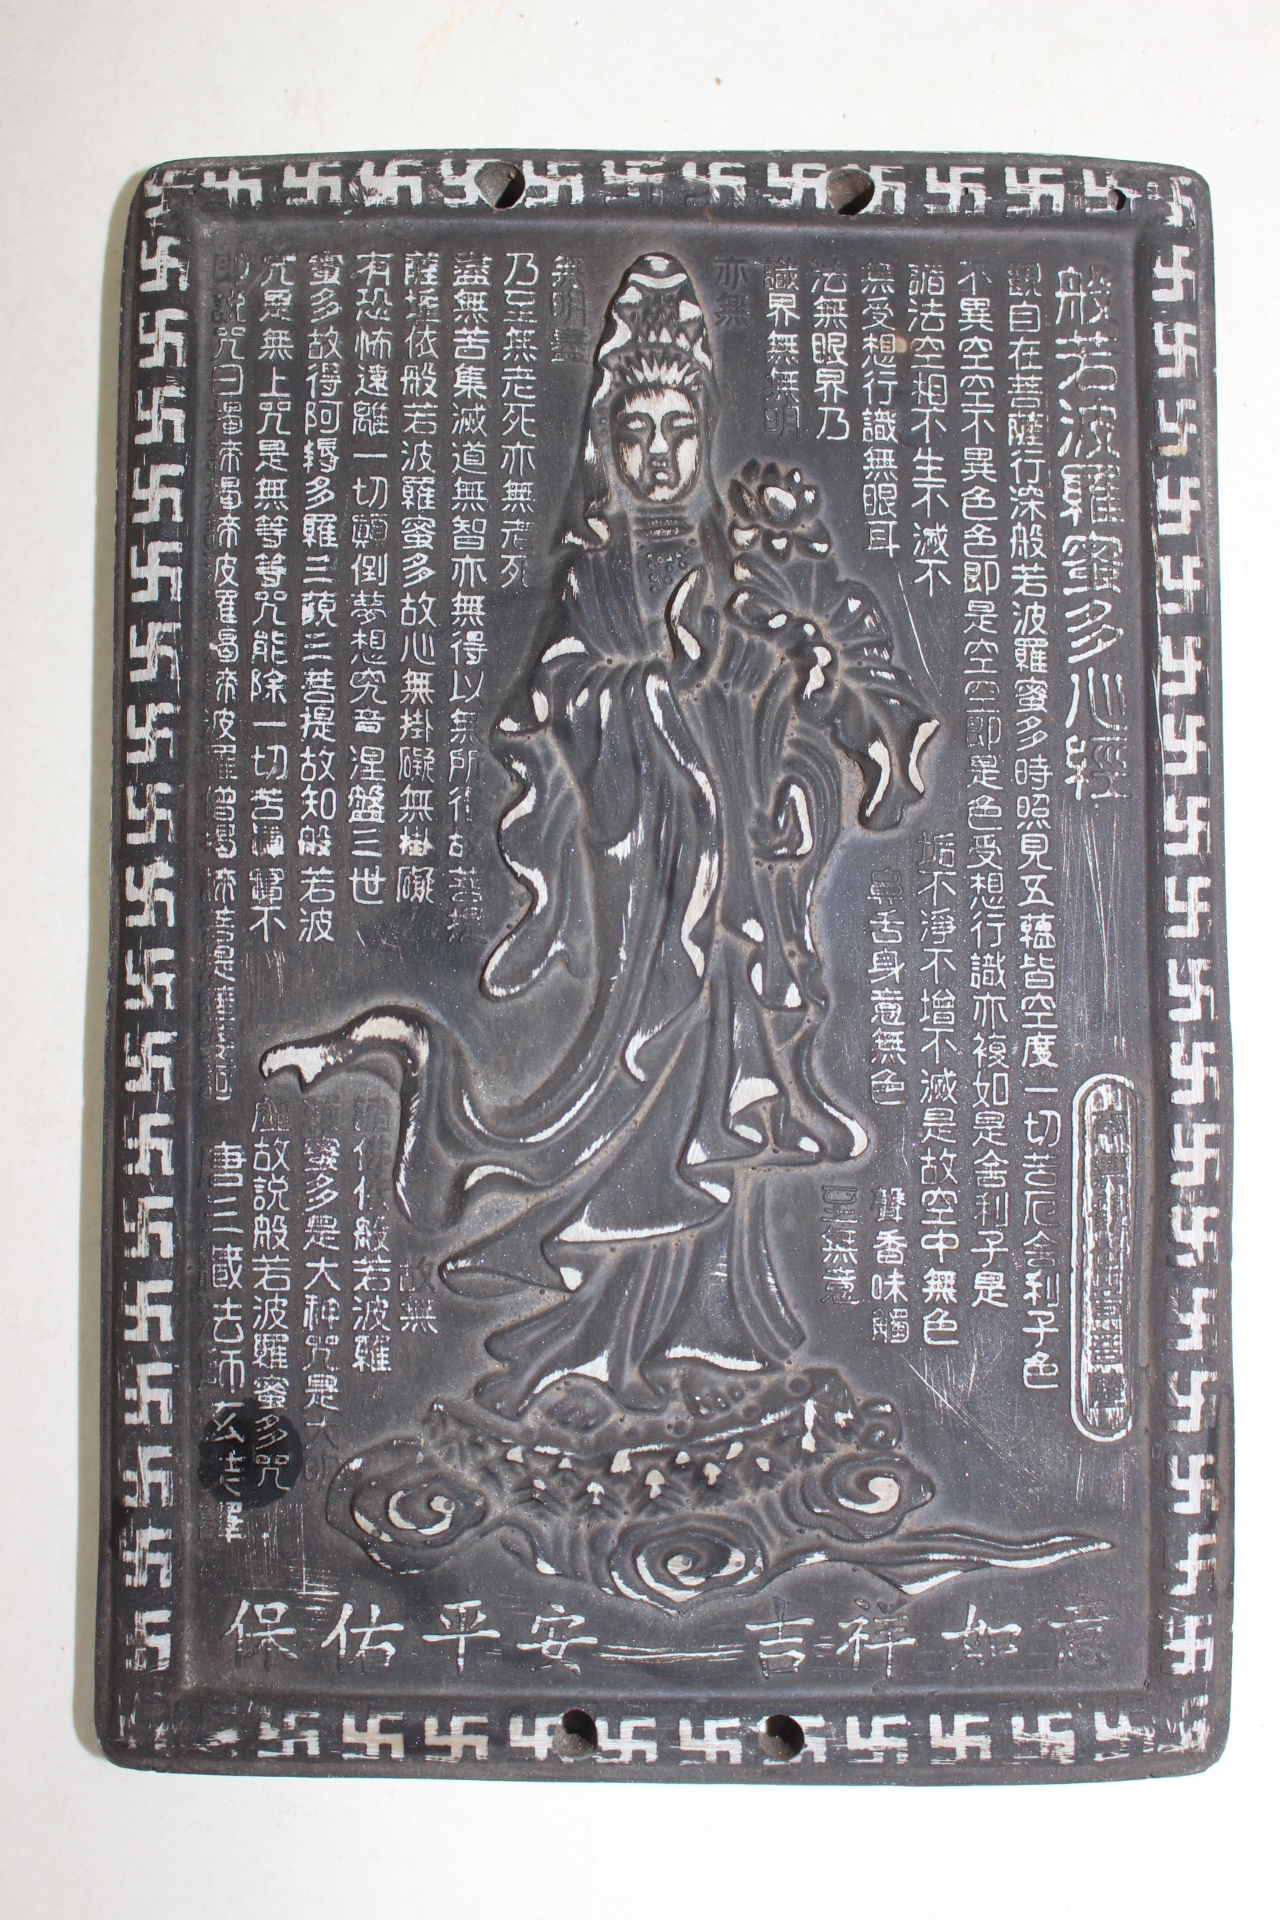 般若波羅蜜多心經
觀自在菩薩行深般若波羅蜜多時照見五蘊皆空度一切苦厄舍利子色
不異空空不異色色即是空空即是色受想行識亦複如是舍利子是
諸法空相不生不滅不
垢不淨不增不滅是故空中無色
無受想行識無眼耳
鼻舌身意無色
聲香味觸
法無眼界乃
至無意
識界無無明
亦無
無明盡
乃至無老死亦無老死
盡無苦集滅道無智亦無得以無所得故菩提
薩埵依般若波羅蜜多故心無掛礙無掛礙
故無
有恐怖遠離一切顛倒夢想究竟涅盤三世
諸佛依般若波羅
蜜多故得阿耨多羅三藐三菩提故知般若波
羅蜜多是大神咒是大明
咒是無上咒是無等等咒能除一切苦真實不
虛故說般若波羅蜜多咒
即說咒曰揭帝揭帝波羅揭帝波羅僧揭帝菩提薩
唐三藏法師玄奘譯
保佑平安 吉祥如意